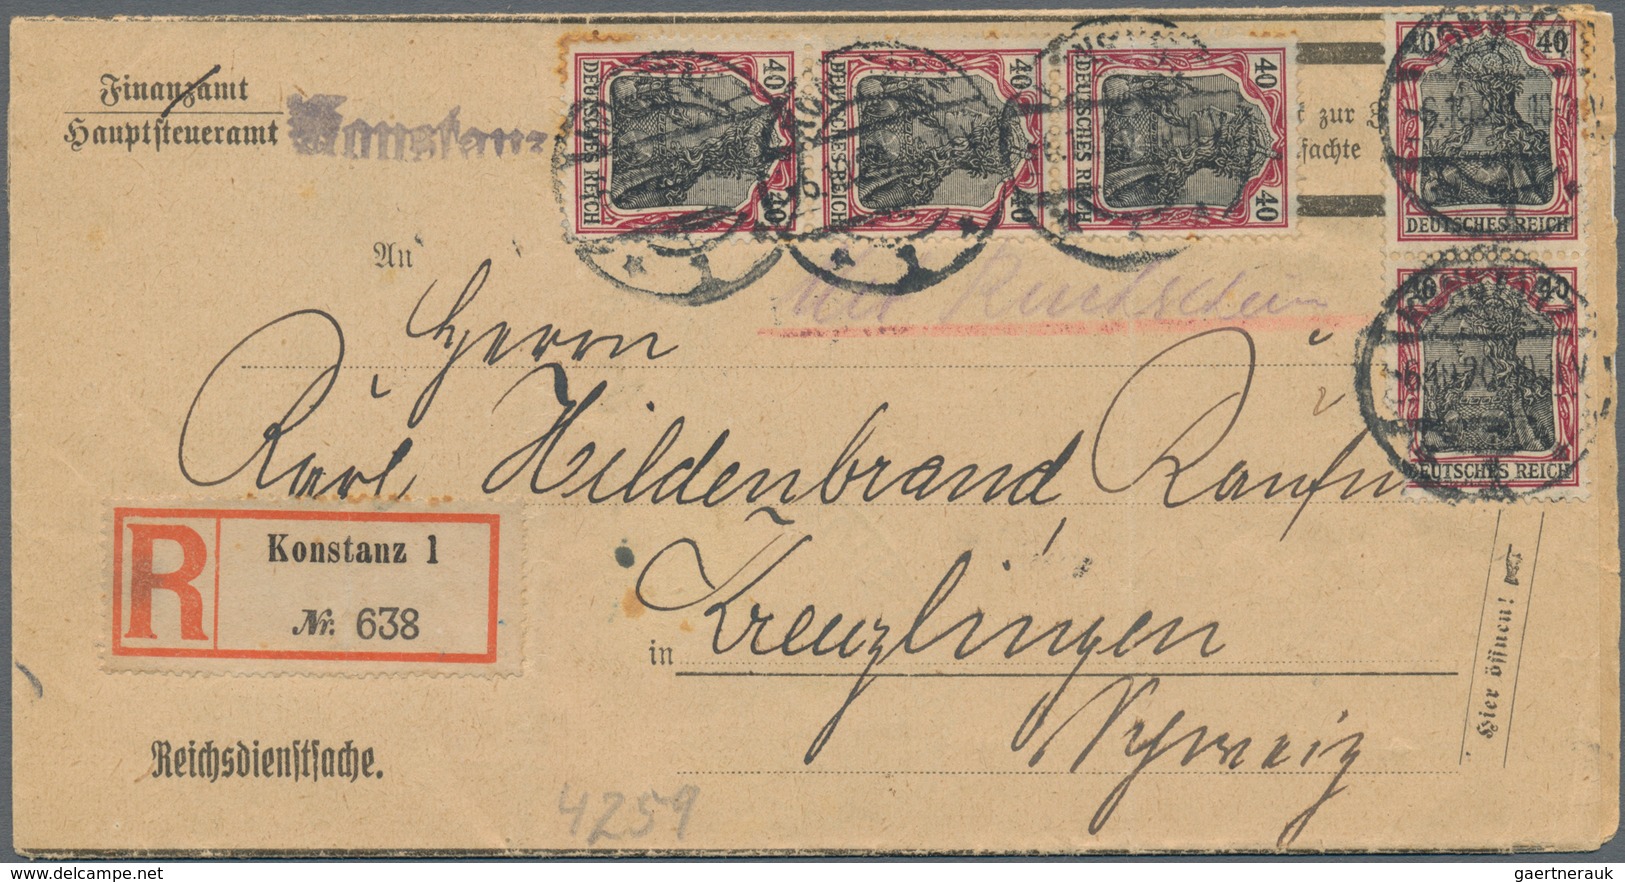 Finanzamt
Hauptsteueramt Konstanz
40 40 DEUTSCHES REICH
40 40 DEUTSCHES REICH
40 40 DEUTSCHES REICH
40 40 DEUTSCHES REICH
40 40 DEUTSCHES REICH
zur
sachte
An
Mit Rückschein
Herrn
Karl Hildenbrand Kaufm
R Konstanz 1
Nr. 638
in Kreuzlingen
Schweiz
Hier öffnen!
Reichsdienstsache.
4259
gaertnerauk